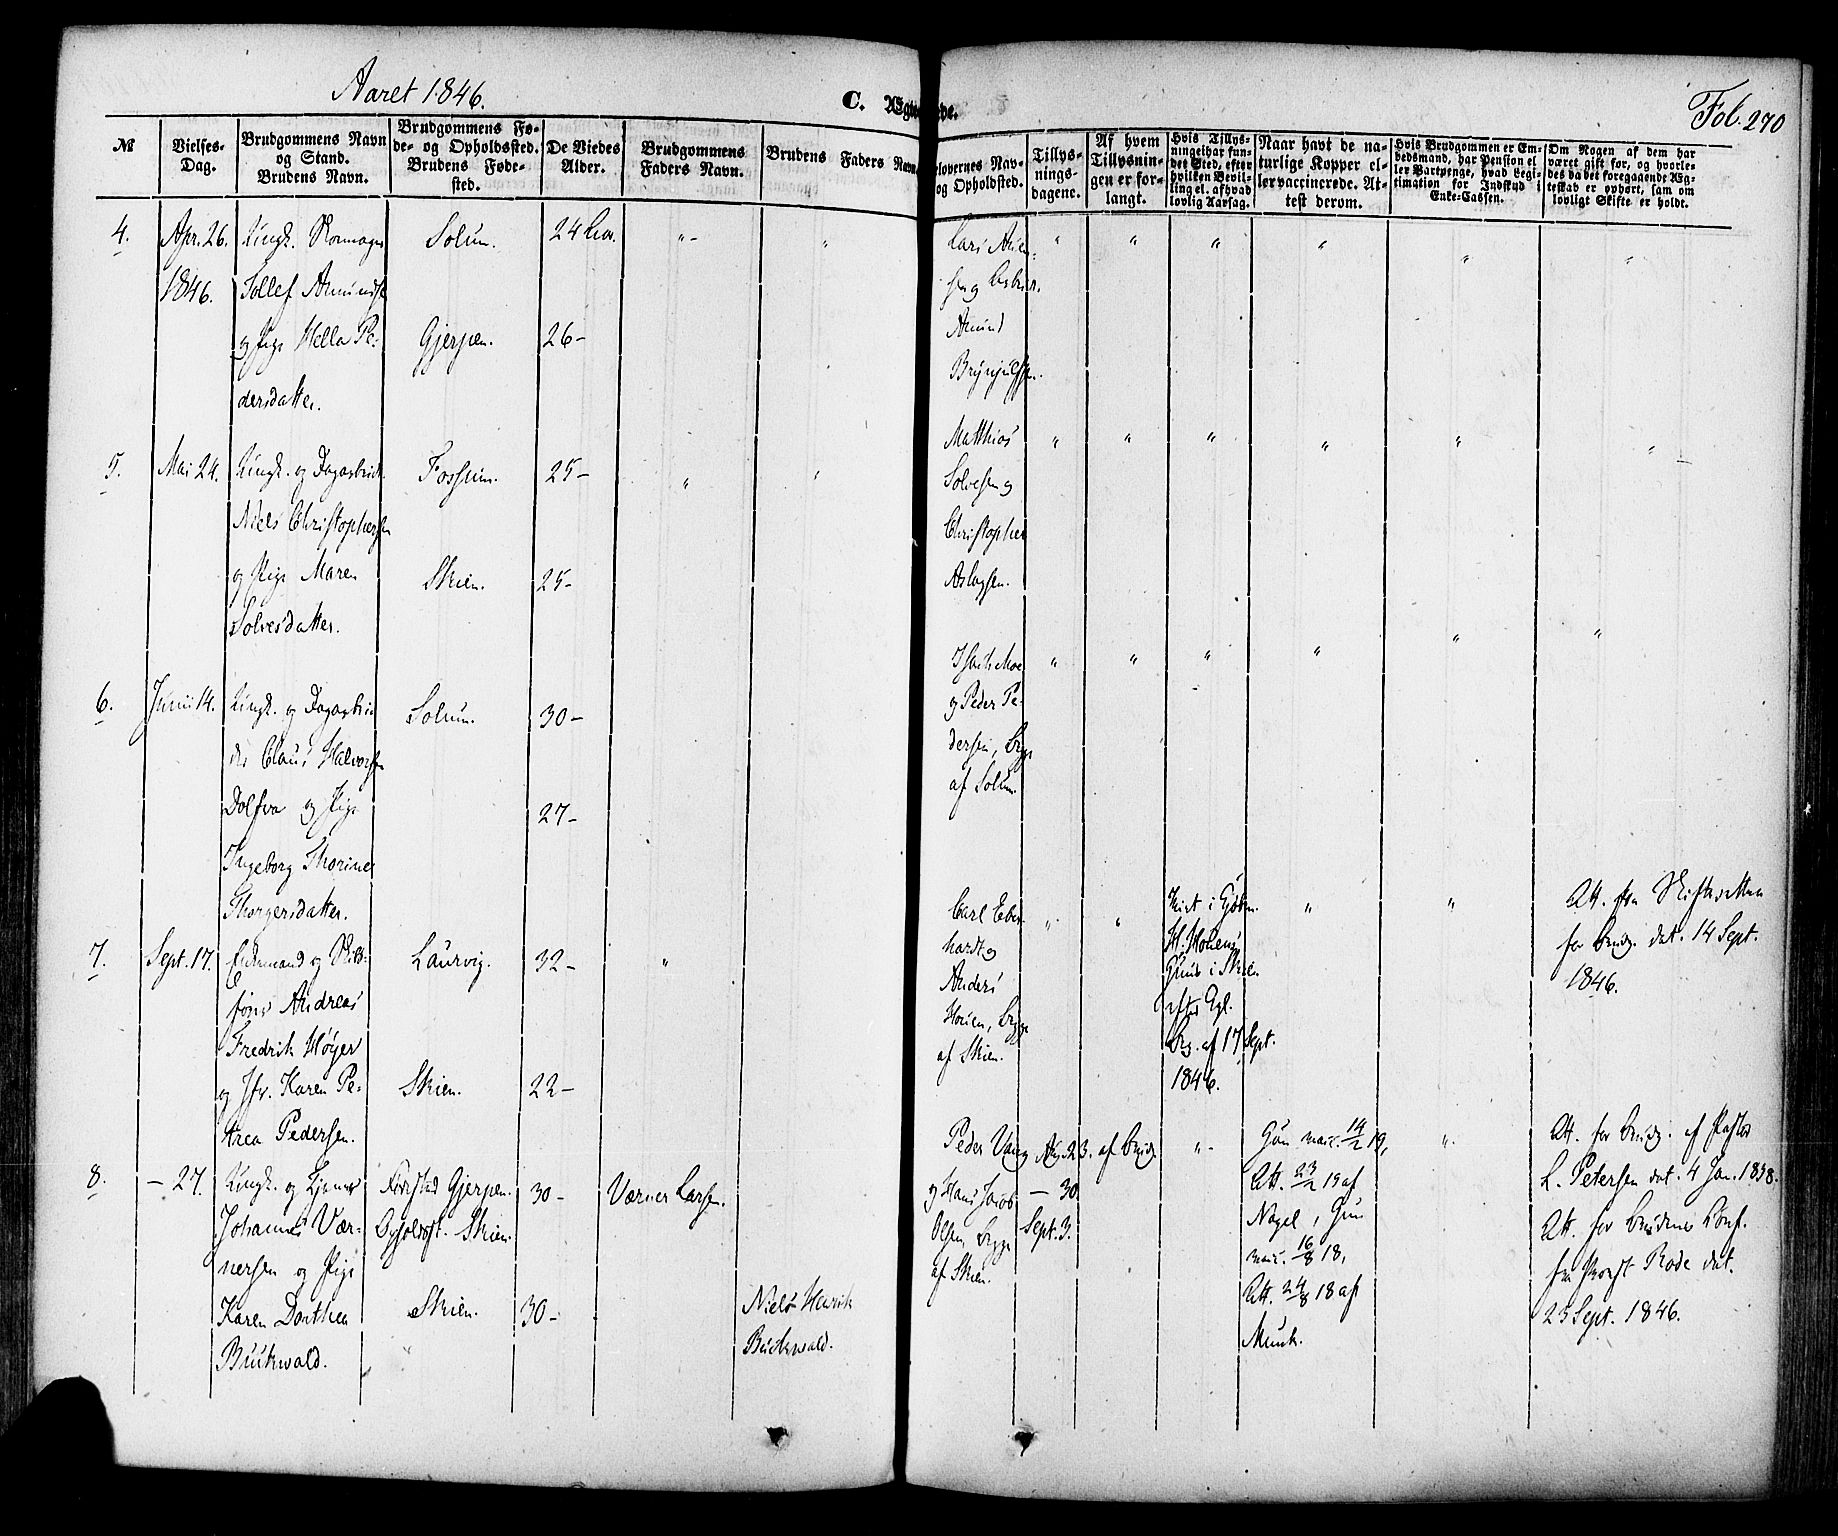 Aaret 1846.
C. Ægte
Fol. 270
№
Vielses-
Dag.
Brudgommens Navn
og Stand.
Brudens Navn.
Brudgommens Fø-
de- og Opholdssted.
Brudens Føde-
sted.
De Viedes
Alder.
Brudgommens
Faders Navn.
Brudens Faders Navn
elovernes Nav-
og Opholdsted.
Tillys-
nings-
dagene.
Af hvem
Tillysnin-
gen er for-
langt.
Hvis Tillys-
ningel har fun-
det Sted, efter
hvilken Bevil-
ling el. afhvad
lovlig Aarsag.
Naar havt de na-
turlige Kopper el-
ler vaccinerede. At-
test derom.
Hvis Brudgommen er Em-
bedsmand, har Pension el
ler Vartpenge, hvad Legi-
timation for Indskud i
Enke-Cassen.
Om Nogen af dem har
været gift for, og hvorle-
des da det foregaaende Æg-
teskab er ophørt, sam om
lovligt Skifte er holdt.
4.
Apr. 26.
1846.
Ungk.
Tollef Amunds
og Pige Hella Pe-
dersdatter.
Solum.
Gjerpen.
24
26 -
Amund
5.
Mai 24.
Ungk. og Dagarbeid
Niels Christophersen
og Pige Maren
Solvesdatter.
Fossum.
Skien.
25 -
25 -
Matthias
Solvesen og
Christopher
Aslagsen.
6.
Junii 14.
Ungk. og Dagarbei
der Claus Halvorsen
Dolfva og Pige
Ingeborg Thorine
Thorgersdatter.
Solum.
30 -
27 -
og Peder Pe-
dersen, begge
af Solum.
7.
Sept. 17.
Enkemand og
Andreas
Fredrik Höyer
og Jfr. Karen Pe-
trea Pedersen.
Laurvig.
Skien.
32 -
22 -
Carl Eber-
hardt og
Anders
Houen, begge
af Skien.
i Skien
efter Kgl.
Bev. af 17 Sept.
1846.
Att. fra Skifteretten
for Brudg. dat. 14 Sept.
1846.
8.
- 27.
Ungk. og Tjener
Johannes Vær-
nersen og Pige
Karen Dorthea
Buckwald.
Gjerpen.
Opholdsst. Skien.
Skien.
30 -
30 -
Værner Larsen.
Niels Henrik
Buckwald.
Peder Vang
og Hans Jacob
Olsen, begge
af Skien.
Aug. 23.
- 30
Sept. 3.
af Brudg.
Gom vacc. 14/2 19,
Att. 23/2 19 af
Nagel, Brud
vacc. 16/8 18,
Att. 24/8 18 af
Munk.
Att. for Brudg. af Pastor
L. Petersen dat. 4 Jan. 1838.
Att. for Brudens Conf.
fra Provst Rode dat.
25 Sept. 1846.